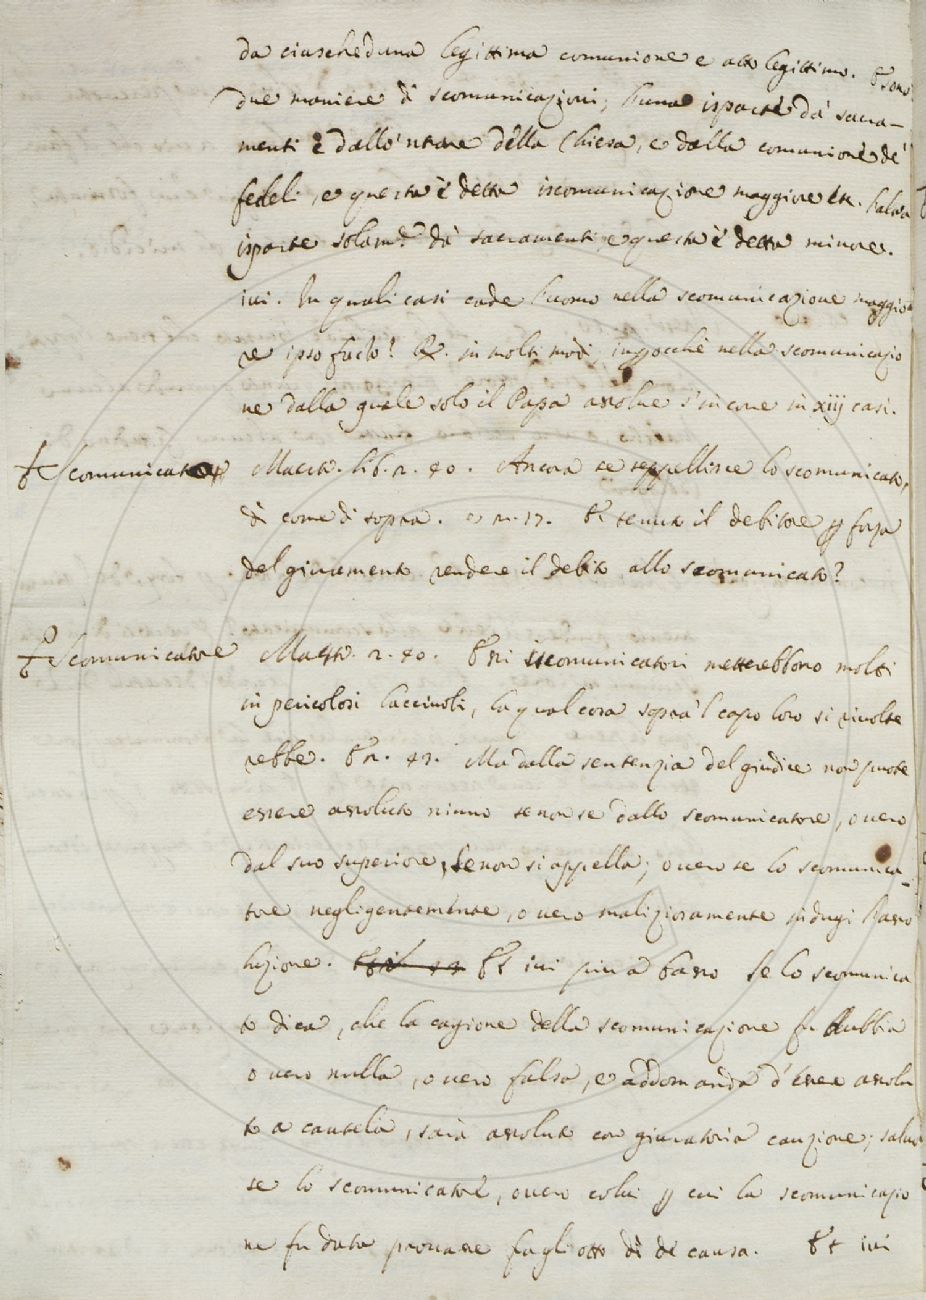 da ciascheduna legittima comunione e atto legittimo. E sono
due maniere di scomunicazioni; l'una isparte da' sacra-
menti e dallo 'ntrare della Chiesa, e dalla comunione de'
fedeli, e questa è detta iscomunicazione maggiore etc. l'altra
isparte solam.e da' sacramenti, e questa è detta minore.
ivi. In quali casi cade l'uomo nella scomunicazione maggio
re ipso facto? R. in molti modi, impocchè nella scomunicazio
ne dalla quale solo il Papa assolve s'incorre in xiij casi.
Scomunicato Maestr. lib. 2. 40. Ancora se seppellisce lo scomunicato,
di come di sopra. 27. È tenuto il debitore p forza
del giuramento rendere il debito allo scomunicato?
Scomunicatore Maestr. 2. 40. E gli scomunicatori metterebbono molti
in pericolosi lacciuoli, la qual cosa sopra 'l capo loro si rivolte
rebbe. E 2. 43. Ma dalla sentenzia del giudice non puote
essere assoluto niuno se non se dallo scomunicatore, overo
dal suo superiore, se non si appella; overo se lo scomunica-
tore negligentemente, overo maliziosamente indugi l'asso
luzione. Et ivi più a basso Se lo scomunica
to dica, che la cagione della scomunicazione fu dubbia
overo nulla, overo falsa, e addomanda d'essere assolu
to a cautela, sarà assoluto con giuratoria cauzione; salvo
se lo scomunicatore, overo colui p cui la scomunicazio
ne fu data provare fra gli otto dì de causa. Et ivi